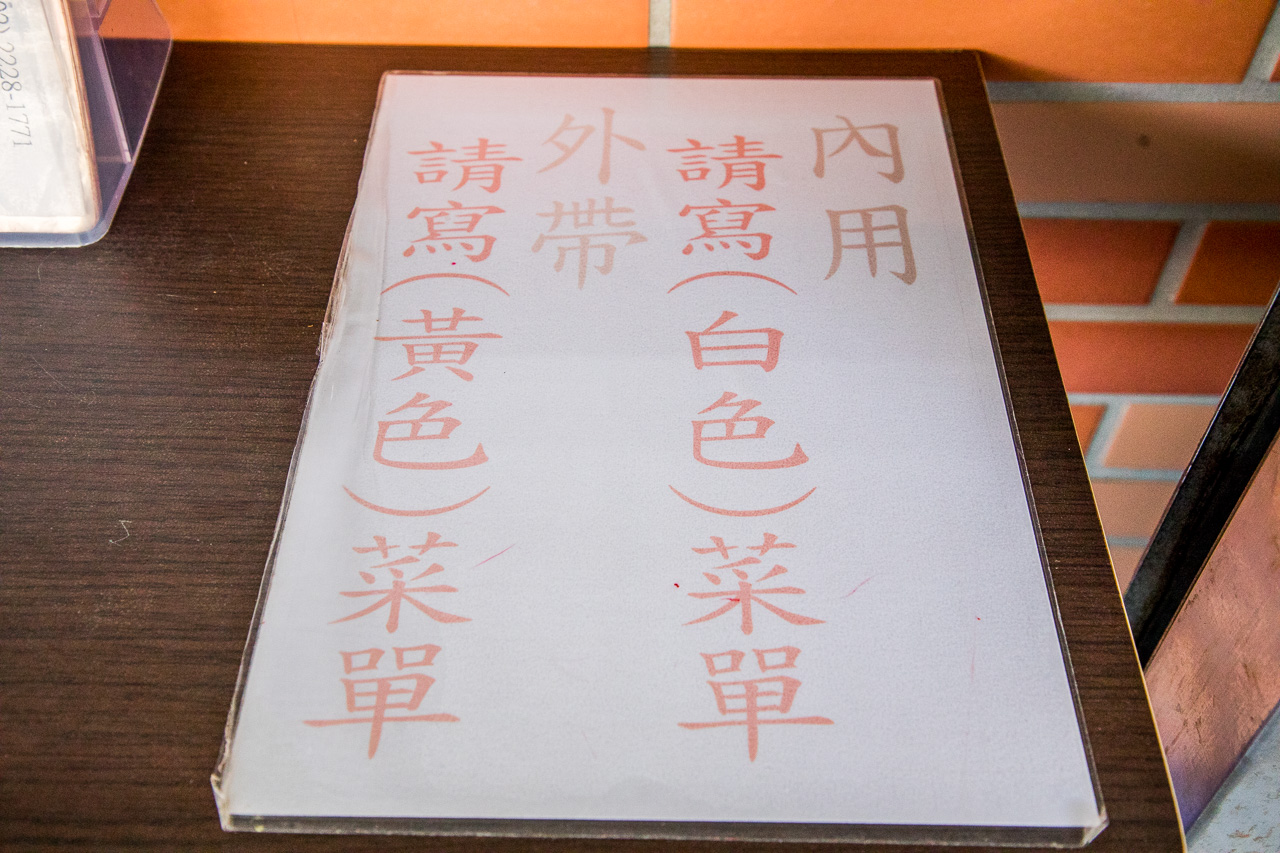 內用
請寫(白色)菜單
外帶
請寫(黃色)菜單
2228-1771